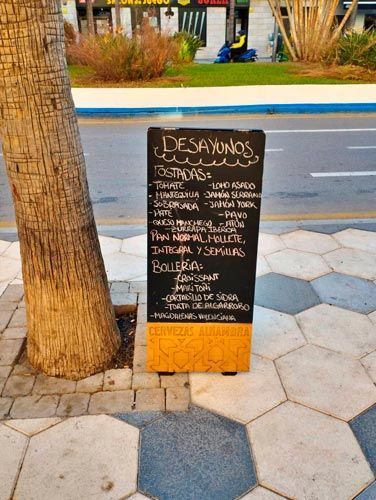 SALON DE JUEGO
JOKER
DESAYUNOS
TOSTADAS:
- TOMATE - LOMO ASADO
- MANTEQUILLA - JAMÓN SERRANO
- SOBRASADA - JAMÓN YORK
- PATE - PAVO
- QUESO MANCHEGO - ATÚN
- ZURRAPA IBERICA
PAN NORMAL, MOLLETE,
INTEGRAL Y SEMILLAS
BOLLERIA:
- CROISSANT
- MARITOÑI
- CORTADILLO DE SIDRA
- TORTA DE ALGARROBO
- MAGDALENAS VALENCIANA
CERVEZAS ALHAMBRA